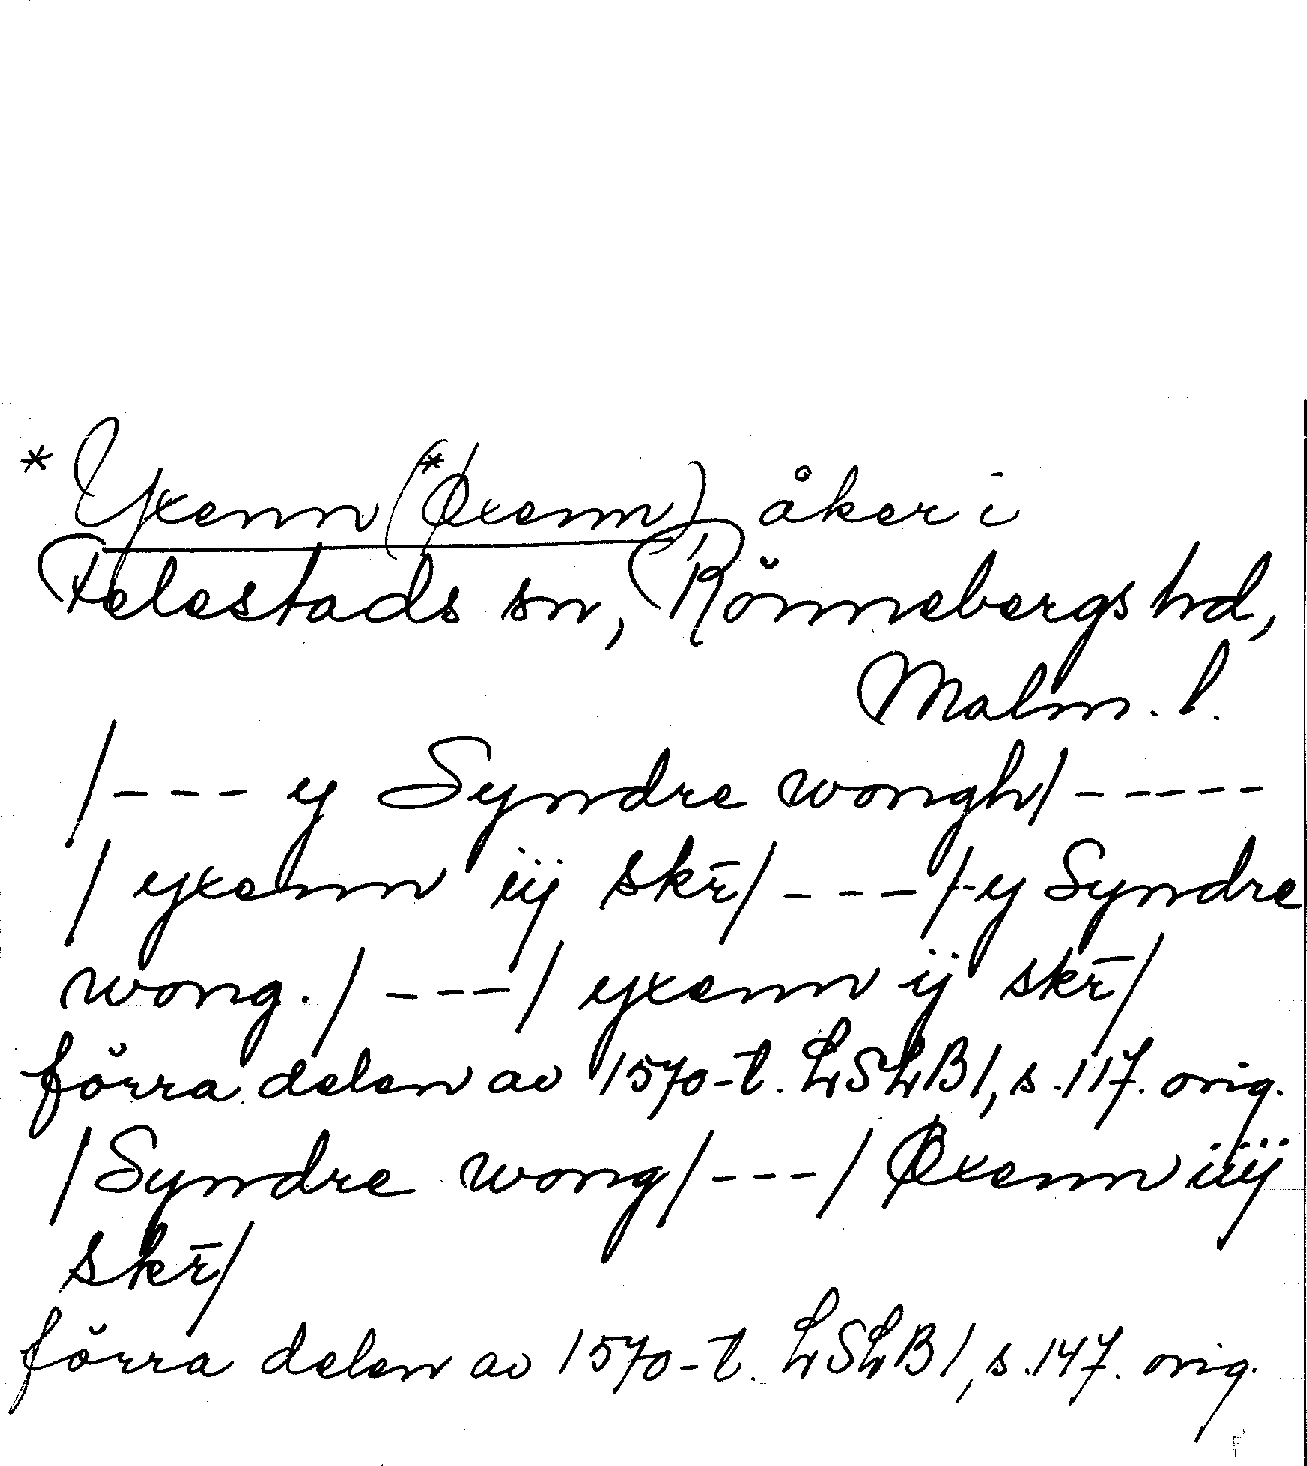 * Yxenn (*Øxenn), åker i
Felestads sn, Rönnebergs hd,
Malm. l.
/--- y Syndre wongh/-----
/ yxenn iij skr̄/---/-y Syndre
wong./---/ yxenn ij skr̄/
förra delen av 1570-t. LSLB1, s. 117. orig.
/Syndre wong/---/ Øxenn iiij
skr̄/
förra delen av 1570-t. LSLB1, s. 147. orig.